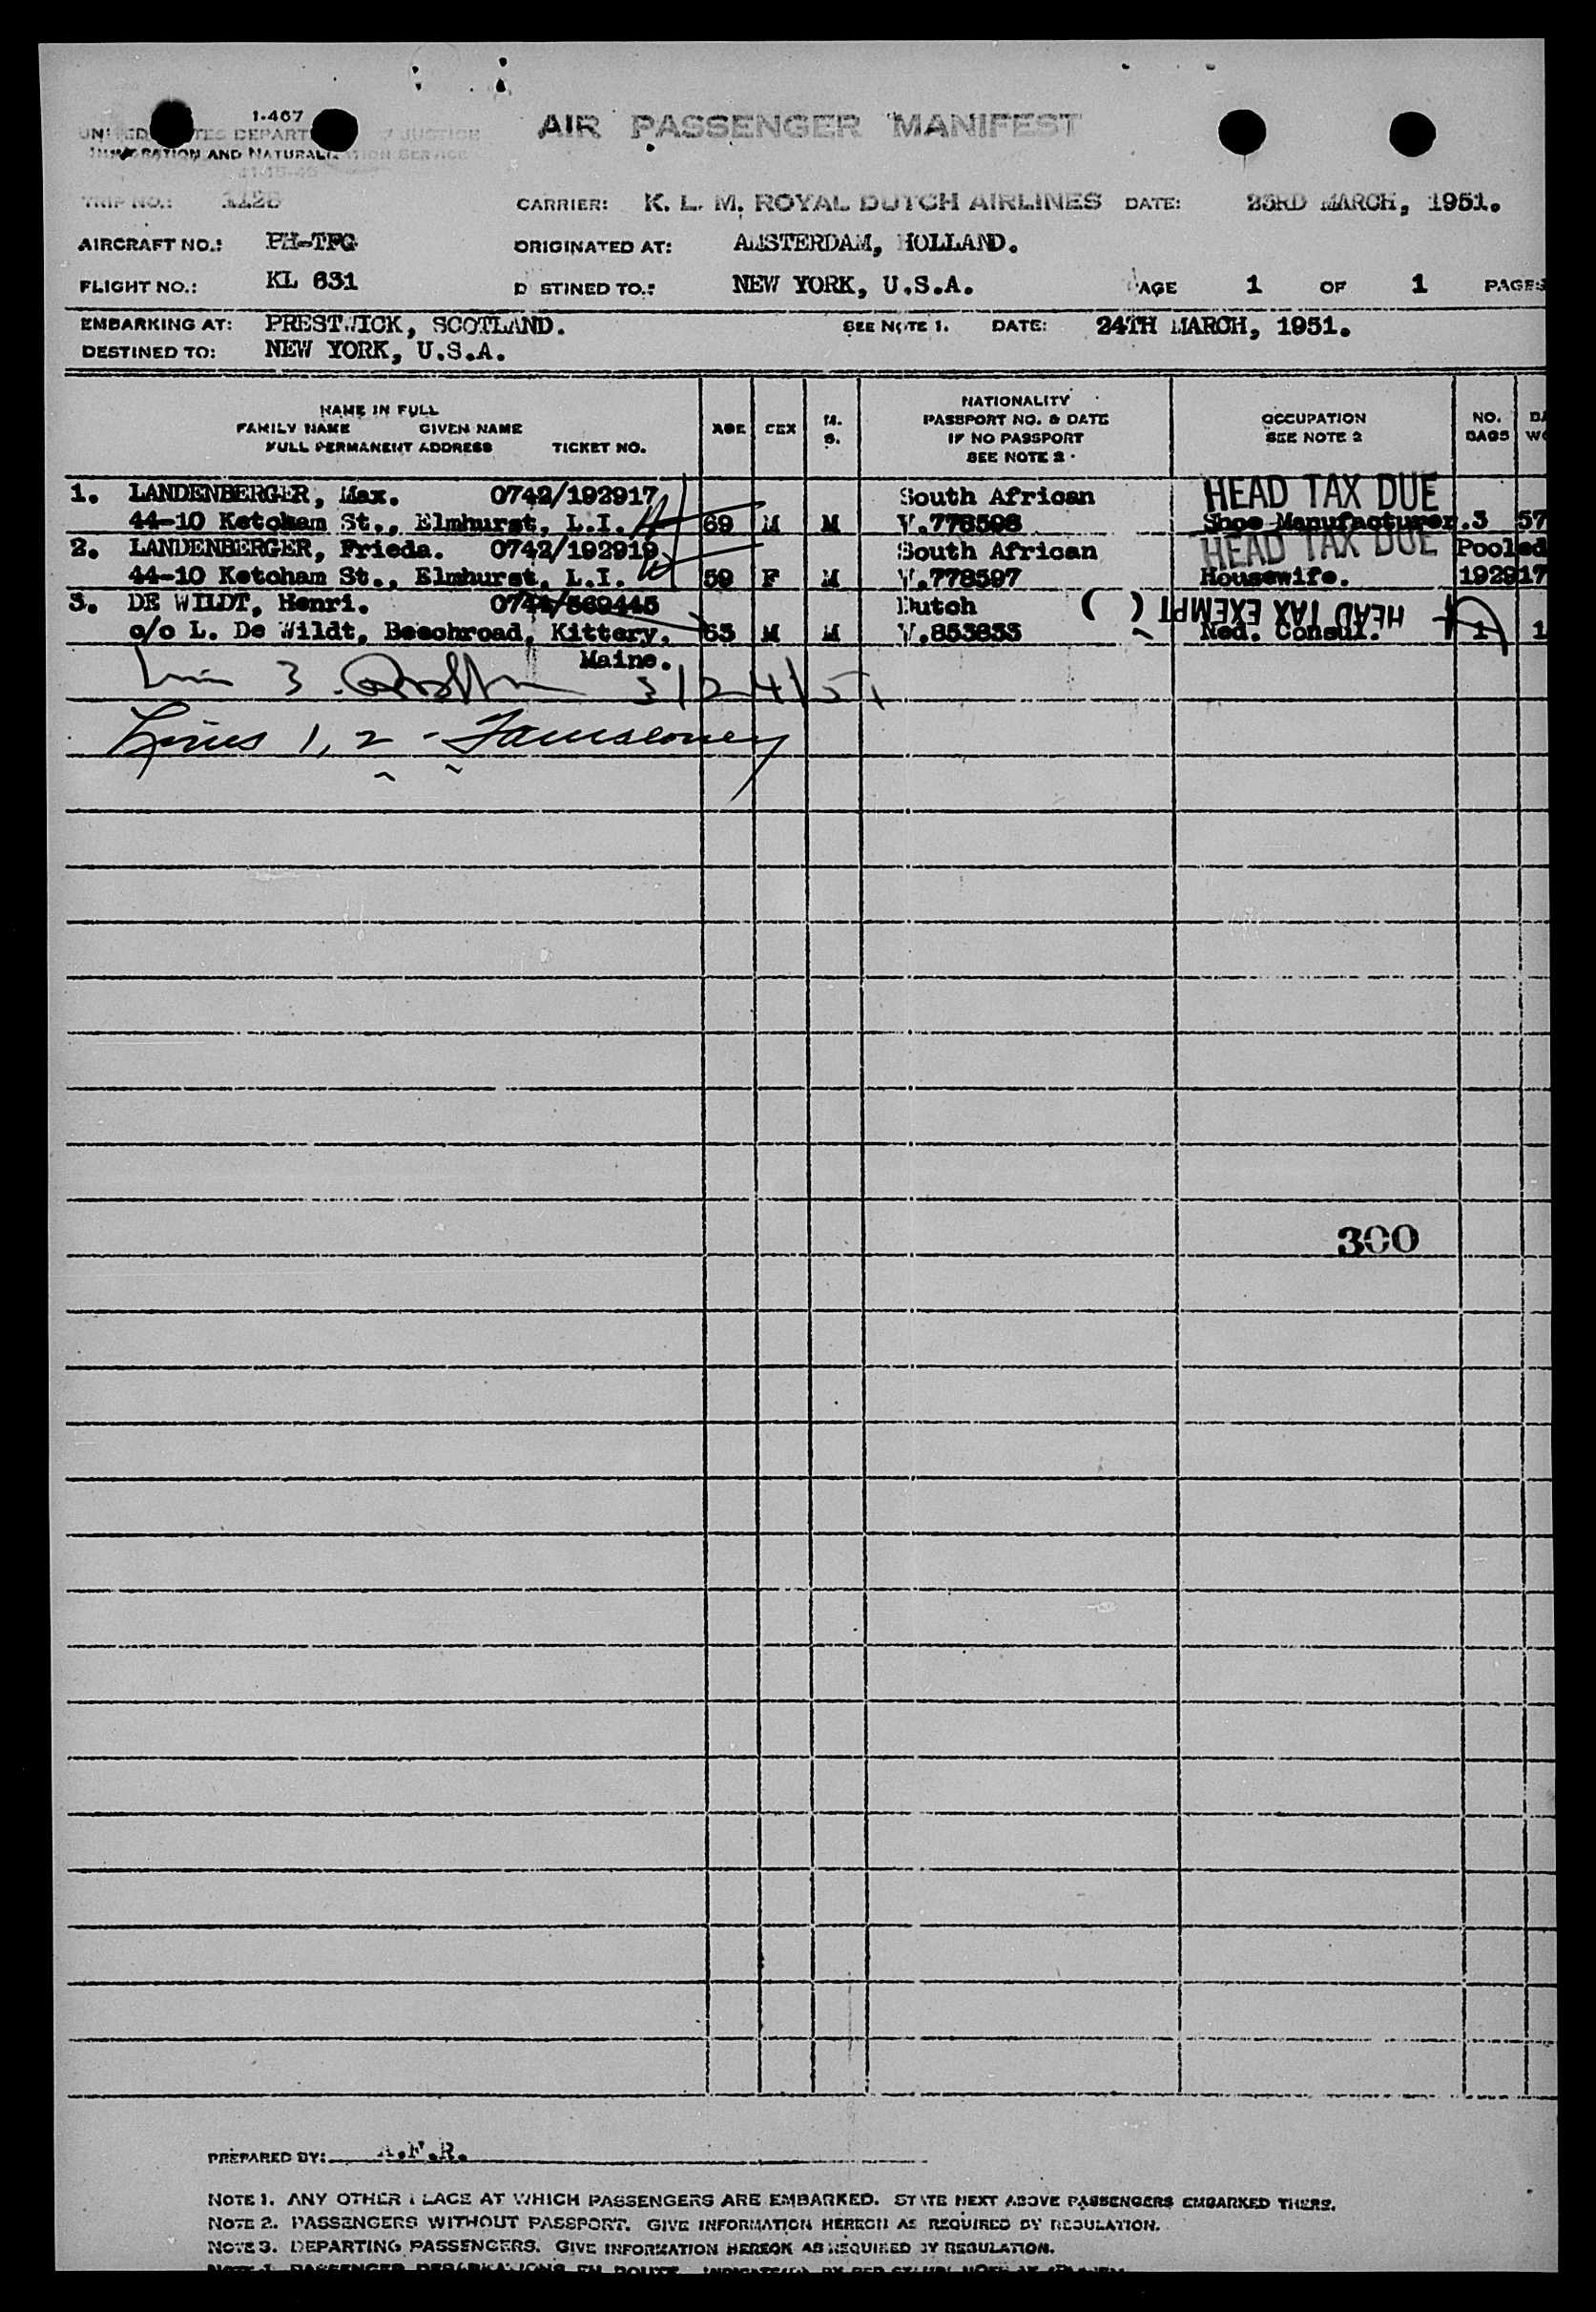 1-467
AIR PASSENGER MANIFEST
UNITED STATES DEPARTMENT OF JUSTICE
IMMIGRATION AND NATURALIZATION SERVICE
TRIP NO.: CARRIER: K. L. M. ROYAL DUTCH AIRLINES DATE: 23RD MARCH, 1951.
AIRCRAFT NO.: PH-TFG ORIGINATED AT: AMSTERDAM, HOLLAND.
FLIGHT NO.: KL 631 DESTINED TO.: NEW YORK, U.S.A. PAGE 1 OF 1 PAGES
EMBARKING AT: PRESTWICK, SCOTLAND. SEE NOTE 1. DATE: 24TH MARCH, 1951.
DESTINED TO: NEW YORK, U.S.A.
NAME IN FULL
FAMILY NAME GIVEN NAME
FULL PERMANENT ADDRESS TICKET NO.
AGE SEX M. S.
NATIONALITY
PASSPORT NO. & DATE
IF NO PASSPORT
SEE NOTE 2
OCCUPATION
SEE NOTE 2
NO.
BAGS
1. LANDENBERGER, Max. 0742/192917 South African HEAD TAX DUE
44-10 Ketcham St., Elmhurst, L.I. 69 M M V.778598 Shoe Manufacturer. 3 57
2. LANDENBERGER, Frieda. 0742/192919 South African HEAD TAX DUE Pooled
44-10 Ketcham St., Elmhurst, L.I. 59 F M V.778597 Housewife. 192917
3. DE WILDT, Henri. 0744/569445 Dutch HEAD TAX EXEMPT ( )
c/o L. De Wildt, Beechroad, Kittery, 63 M M V.853833 Ned. Consul. 1 1
Maine.
3 3/24/51
Lines 1, 2 -
300
PREPARED BY: A.F.R.
NOTE 1. ANY OTHER PLACE AT WHICH PASSENGERS ARE EMBARKED. STATE NEXT ABOVE PASSENGERS EMBARKED THERE.
NOTE 2. PASSENGERS WITHOUT PASSPORT. GIVE INFORMATION HEREON AS REQUIRED BY REGULATION.
NOTE 3. DEPARTING PASSENGERS. GIVE INFORMATION HEREON AS REQUIRED BY REGULATION.